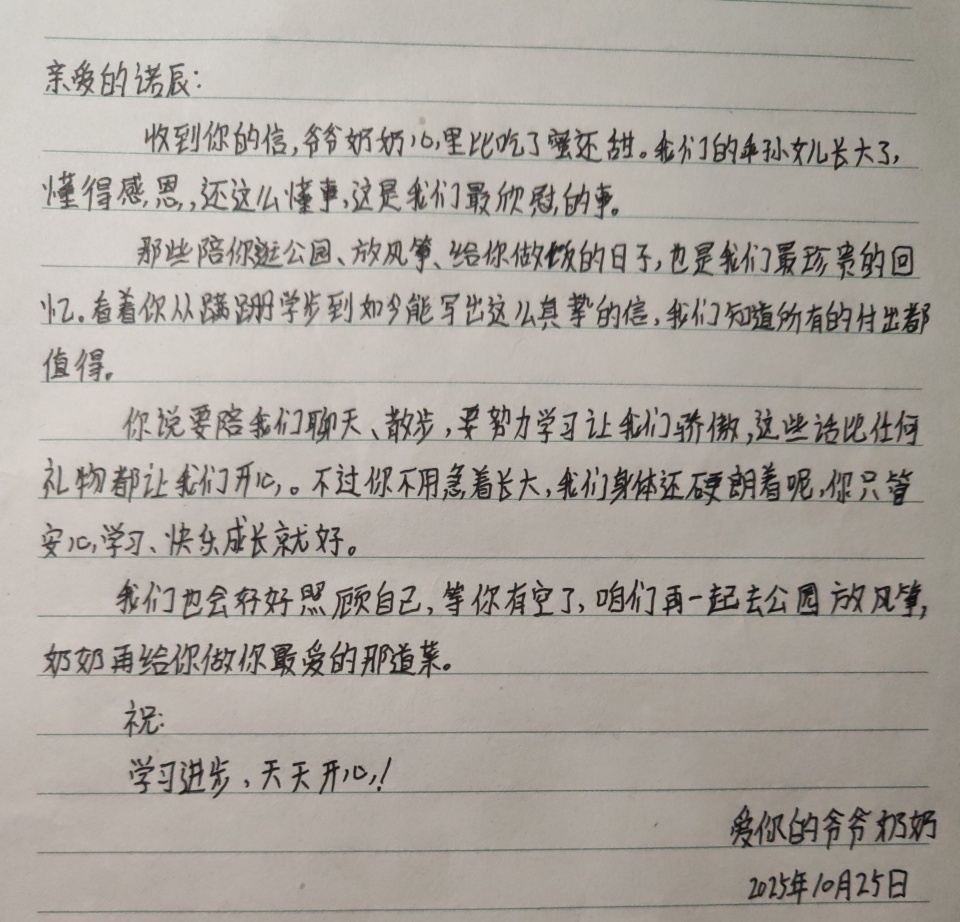 亲爱的诺辰：
收到你的信，爷爷奶奶心里比吃了蜜还甜。我们的乖孙女儿长大了，
懂得感恩，还这么懂事，这是我们最欣慰的事。
那些陪你逛公园、放风筝、给你做饭的日子，也是我们最珍贵的回
忆。看着你从蹒跚学步到如今能写出这么真挚的信，我们知道所有的付出都
值得。
你说要陪我们聊天、散步，要努力学习让我们骄傲，这些话比任何
礼物都让我们开心。不过你不用急着长大，我们身体还硬朗着呢，你只管
安心学习、快乐成长就好。
我们也会好好照顾自己，等你有空了，咱们再一起去公园放风筝，
奶奶再给你做你最爱的那道菜。
祝：
学习进步，天天开心！
爱你的爷爷奶奶
2025年10月25日